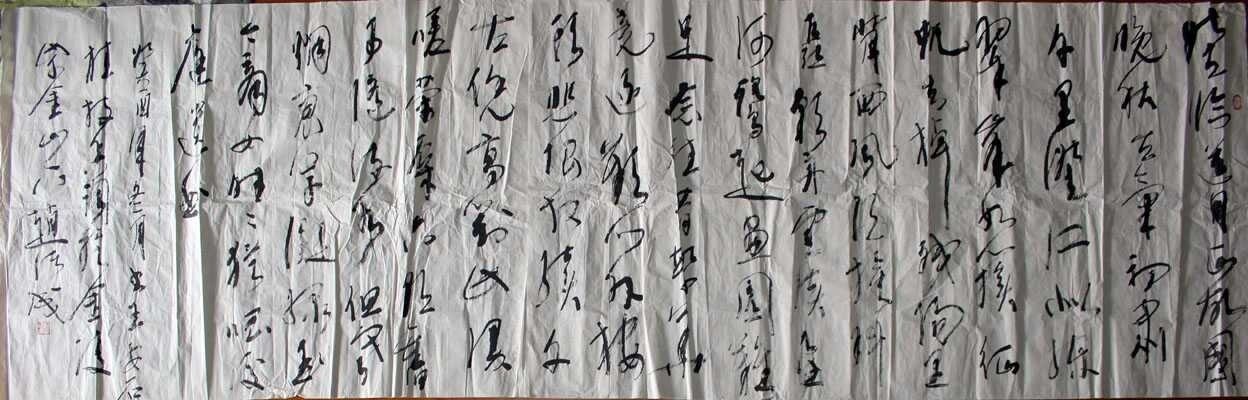 登临送目正故國
晚秋天氣初肅
千里澄江似練
翠峰如簇征
帆去棹残陽里
背西風酒旗斜
矗彩舟雲淡星
河鷺起畫圖難
足念往昔繁華
竞逐歎门外楼
頭悲恨相續千
古凭高對此漫
嗟榮辱六朝舊
事随流水但寒
烟衰草凝緑至
今商女時時猶唱後
庭遺曲
癸酉年五月书王安石
桂枝香詞於金陵
紫金山下趙成